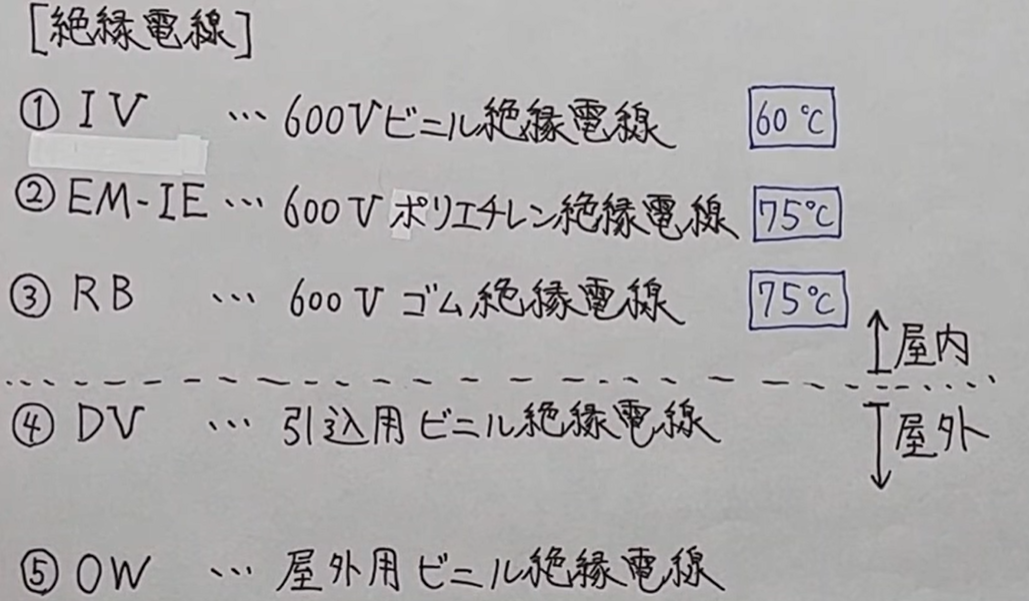 [絶縁電線]
① IV … 600Vビニル絶縁電線 60℃
② EM-IE … 600Vポリエチレン絶縁電線 75℃
③ RB … 600Vゴム絶縁電線 75℃
↑屋内
④ DV … 引込用ビニル絶縁電線
↓屋外
⑤ OW … 屋外用ビニル絶縁電線